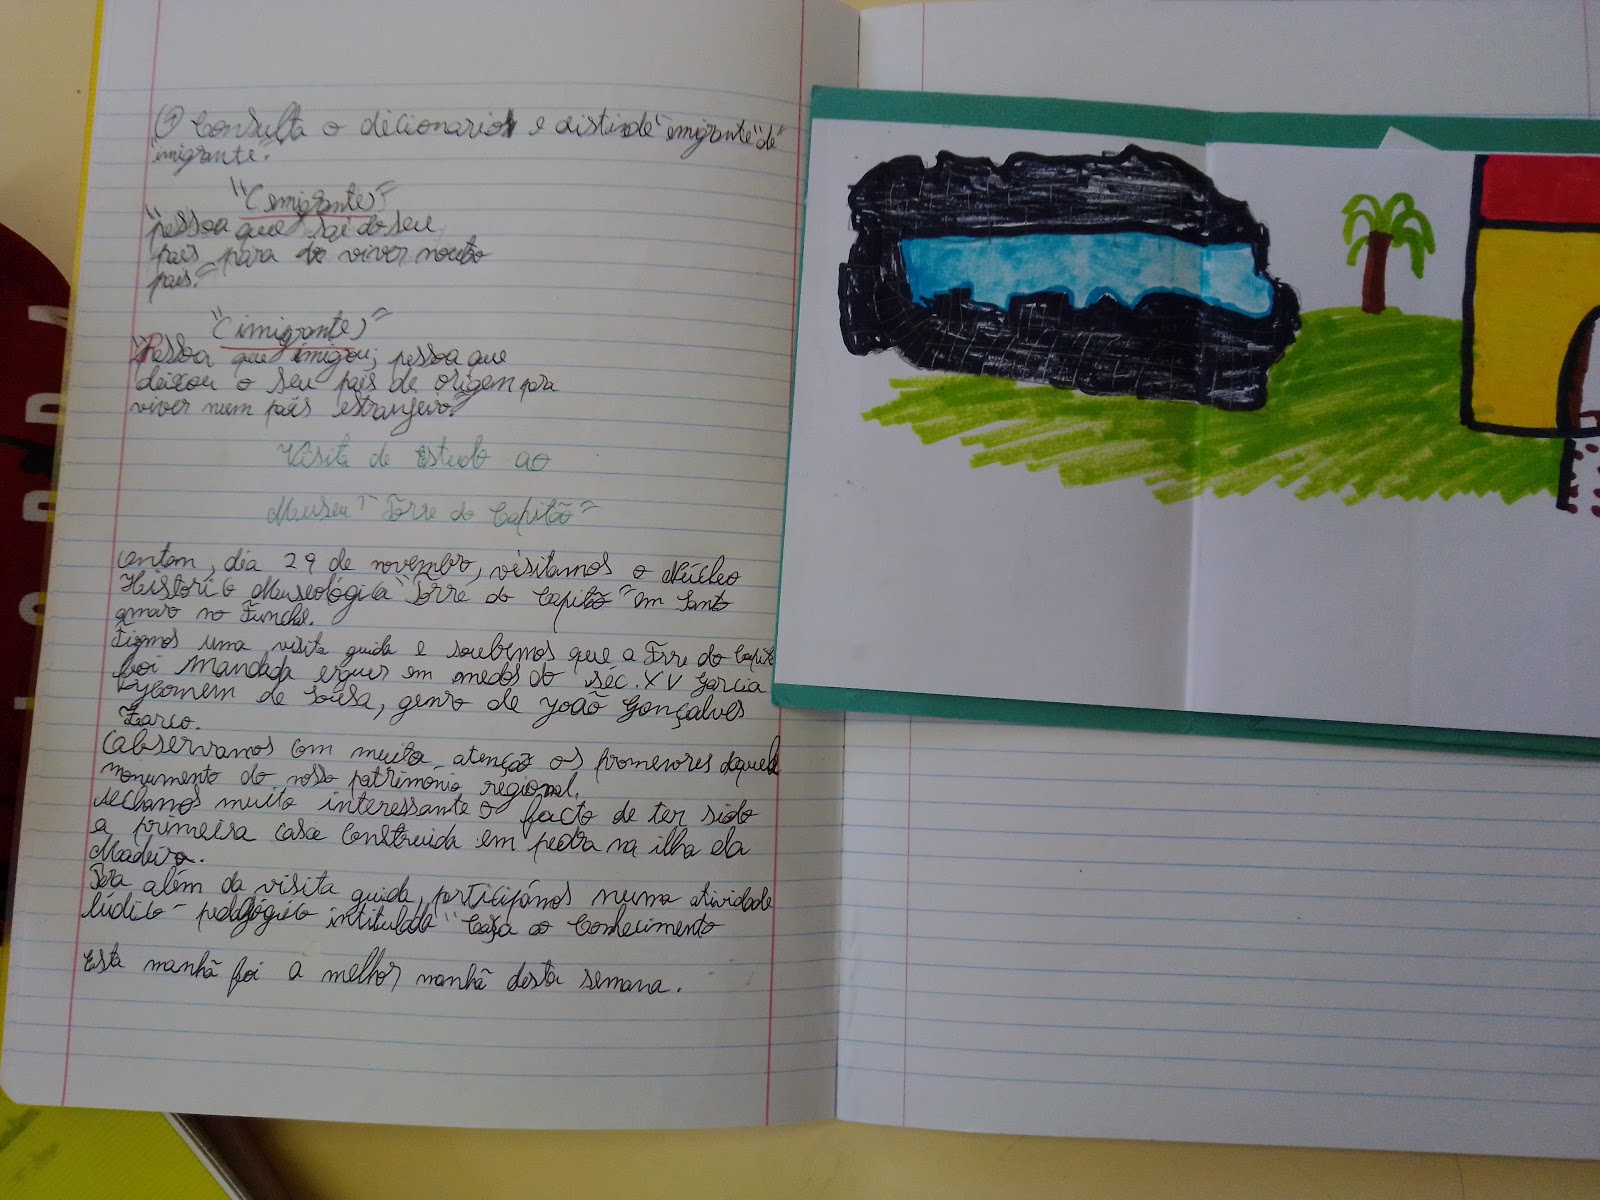 Consulta o decionario e distinde "emigrante" de
"imigrante".
"(emigrante)"
"pessoa que sai do seu
país para viver noutro
país."
"(imigrante)"
Pessoa que imigou; pessoa que
deixou o seu país de origem para
viver num país estranjeiro."
Visita de Estudo ao
Museu "Torre do Capitão"
ontem, dia 29 de novembro, visitamos o Núcleo
Historico Museológica "Torre do Capitão" em Santo
amaro no Funchal.
Fizemos uma visita guida e soubemos que a Torre do Capitão
foi mandada erguer em medos do séc. XV Garcia
Homem de Sousa, genro de João Gonçalves
Zarco.
Observamos com muita atenção os promenores daquele
monumento do nosso patrimónia regional.
Achamos muito interessante o facto de ter sido
a primeira casa construida em pedra na ilha da
Madeira.
Para além da visita guida, participámos numa atividade
lúdico-pedagógico intitulada "Caça ao Conhecimento
Esta manhã foi a melhor manhã desta semana.